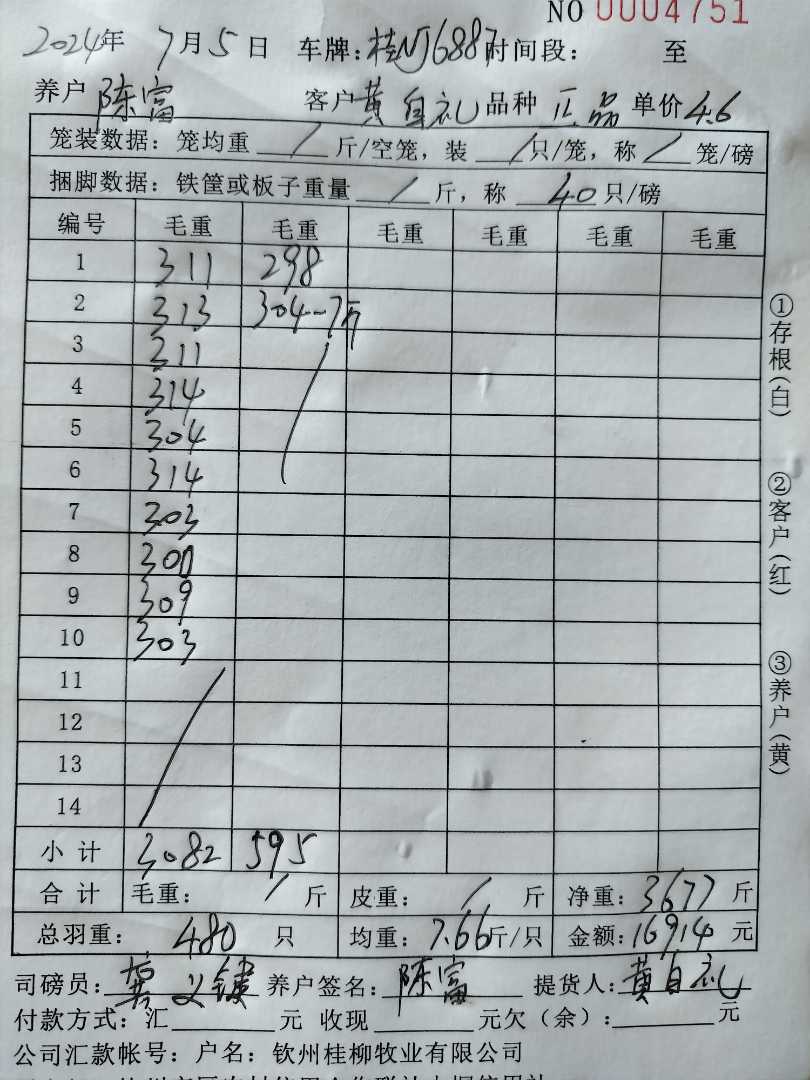 NO 0004751
2024年 7月5日 车牌:桂NJ6887时间段: 至
养户 陈富 客户 黄自礼 品种 正品 单价 4.6
笼装数据: 笼均重 / 斤/空笼, 装 / 只/笼, 称 / 笼/磅
捆脚数据: 铁筐或板子重量 / 斤, 称 40 只/磅
编号 毛重 毛重 毛重 毛重 毛重 毛重
1 311 298
2 313 304-7斤
3 311
4 314
5 304
6 314
7 303
8 300
9 309
10 303
11
12
13
14
小计 3082 595
合计 毛重: / 斤 皮重: / 斤 净重: 3677 斤
总羽重: 480 只 均重: 7.66斤/只 金额: 16914 元
司磅员: 龚义键 养户签名: 陈富 提货人: 黄自礼
付款方式: 汇 元 收现 元欠(余): 元
公司汇款帐号: 户名: 钦州桂柳牧业有限公司
①存根(白)
②客户(红)
③养户(黄)